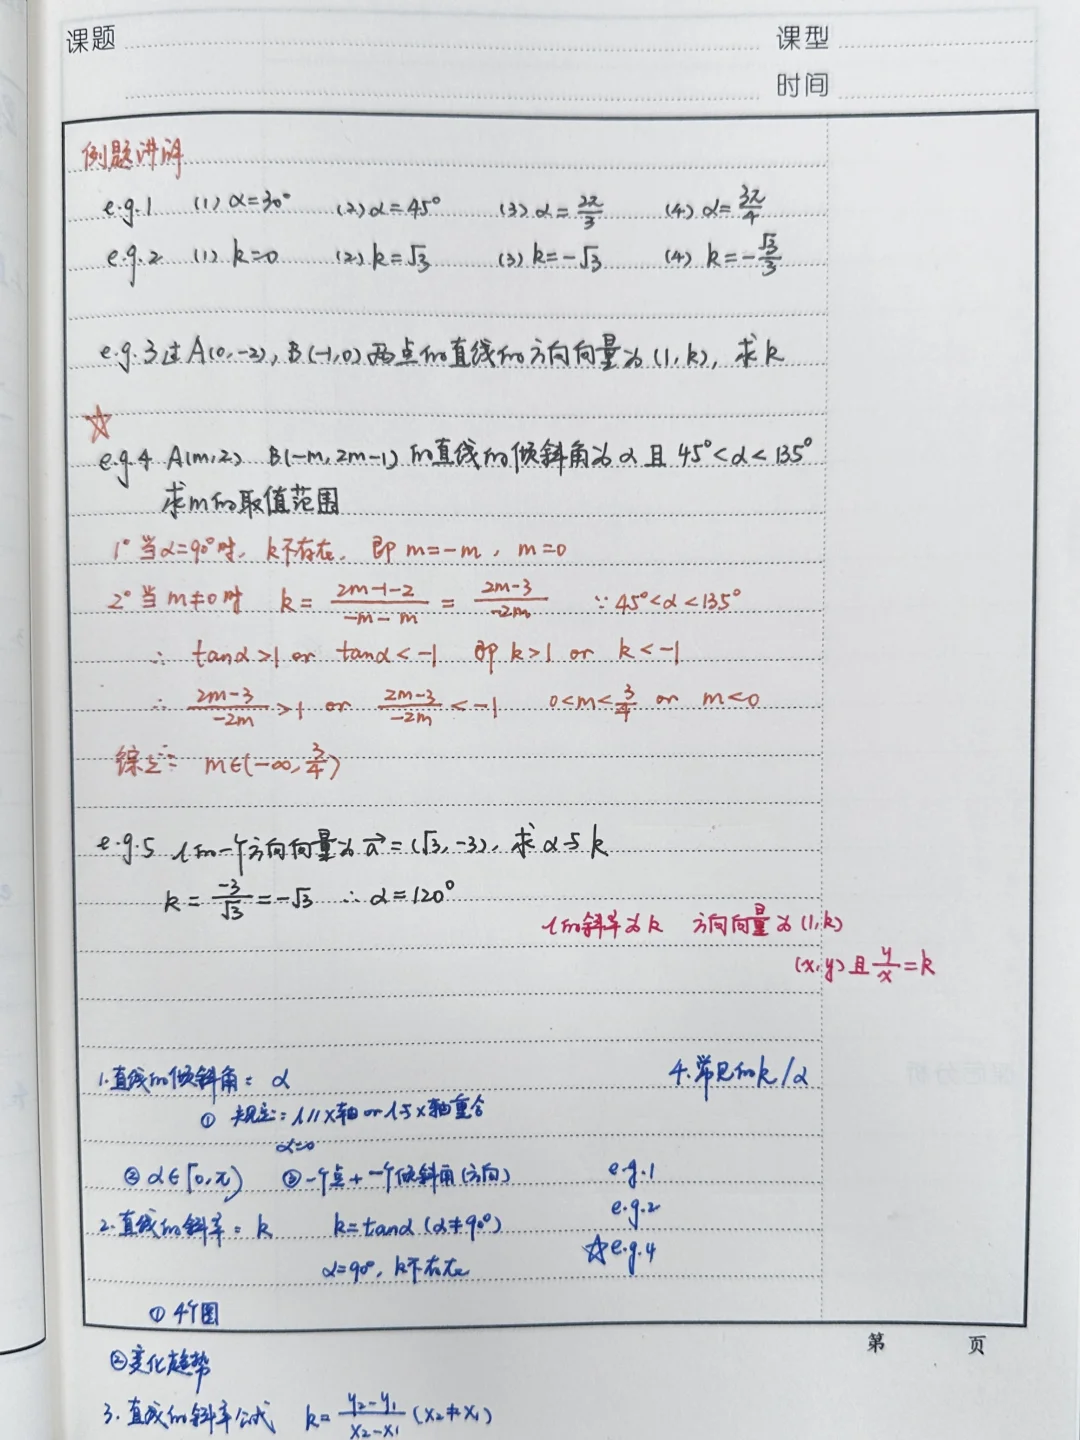 课题
课型
时间
例题讲解
e.g.1 (1) α=30° (2) α=45° (3) α=2π/3 (4) α=3π/4
e.g.2 (1) k=0 (2) k=√3 (3) k=-√3 (4) k=-√3/3
e.g.3 过A(0,-2), B(-1,0) 两点的直线的方向向量为(1,k), 求k
☆
e.g.4 A(m,2) B(-m,2m-1) 的直线的倾斜角为α且 45°<α<135°
求m的取值范围
1° 当α=90°时, k不存在, 即 m=-m, m=0
2° 当 m≠0时 k=(2m-1-2)/(-m-m)=(2m-3)/(-2m) ∵45°<α<135°
∴ tanα>1 or tanα<-1 即 k>1 or k<-1
∴ (2m-3)/(-2m)>1 or (2m-3)/(-2m)<-1 0<m<3/4 or m<0
综上: m∈(-∞,3/4)
e.g.5 l的一个方向向量为a⃗=(√3,-3), 求α与k
k=-3/√3=-√3 ∴α=120°
l的斜率为k 方向向量为(1,k)
(x,y)且y/x=k
1.直线的倾斜角: α
4.常见的k/α
① 规定: l//x轴 or l与x轴重合
α=0
② α∈[0,π) ③一个点+一个倾斜角(方向)
e.g.1
e.g.2
☆e.g.4
2.直线的斜率: k k=tanα (α≠90°)
α=90°, k不存在
① 4个图
第 页
②变化趋势
3.直线的斜率公式 k=(y₂-y₁)/(x₂-x₁) (x₂≠x₁)